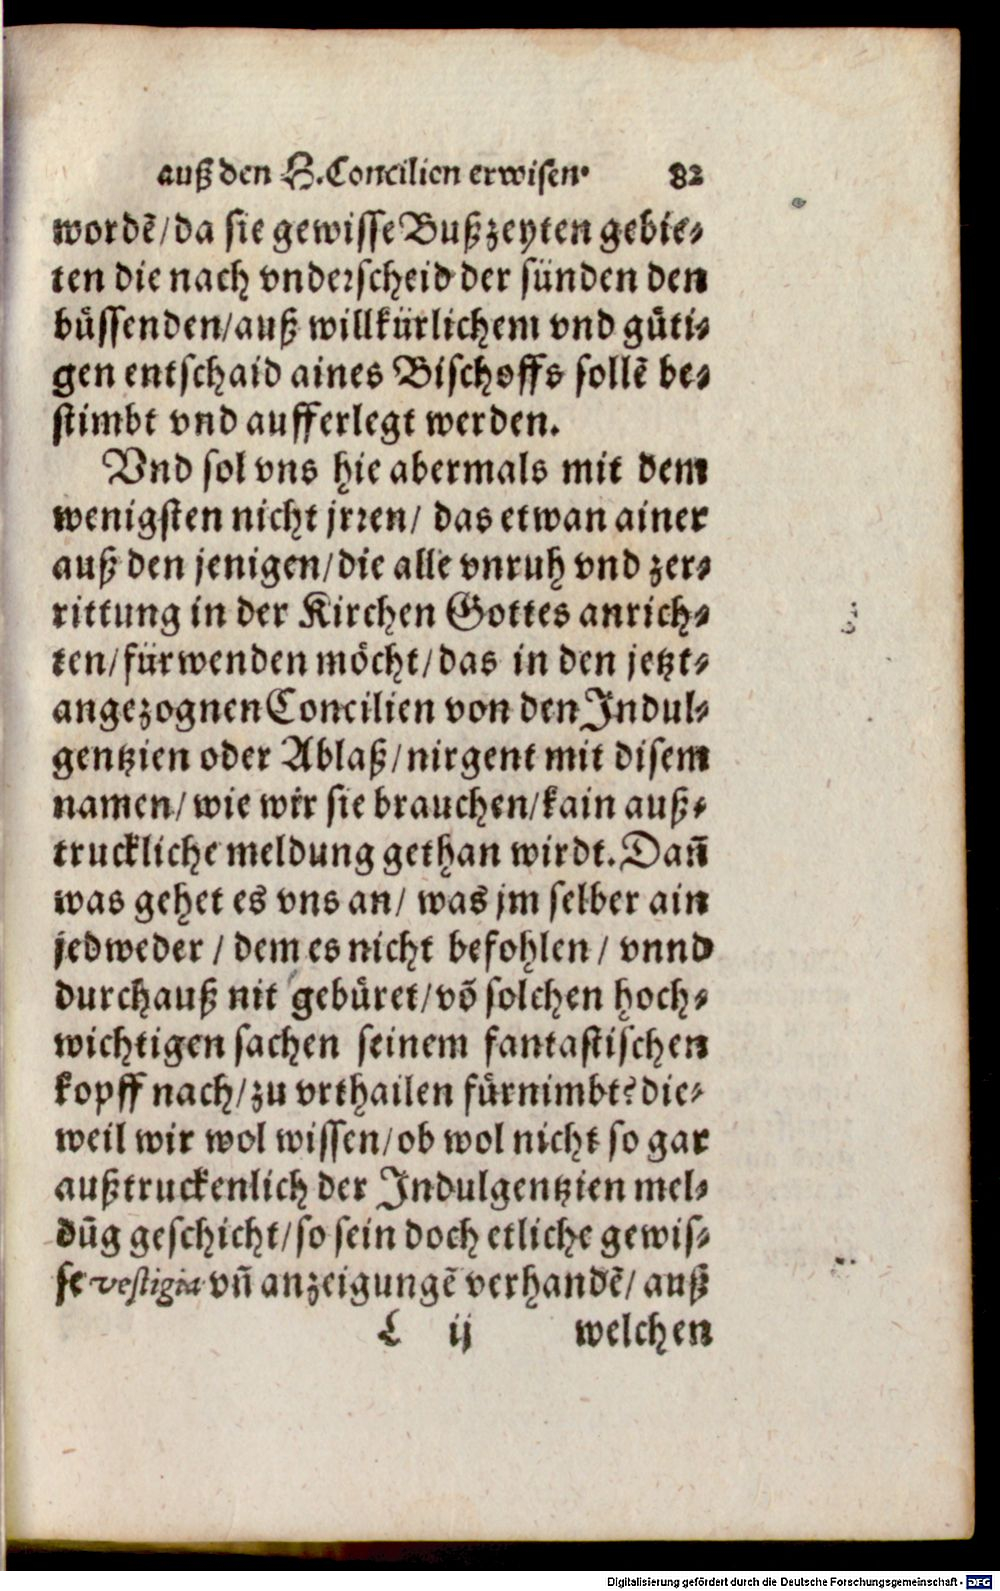 auß den H. Concilien erwisen. 82
wordẽ/da sie gewisse Bußzeyten gebie-
ten die nach vnderscheid der sünden den
büssenden/auß willkürlichem vnd güti-
gen entschaid aines Bischoffs sollẽ be-
stimbt vnd aufferlegt werden.
Vnd sol vns hie abermals mit dem
wenigsten nicht jrren/ das etwan ainer
auß den jenigen/die alle vnruh vnd zer-
rittung in der Kirchen Gottes anrich-
ten/fürwenden möcht/das in den jetzt-
angezognen Concilien von den Indul-
gentzien oder Ablaß/nirgent mit disem
namen/wie wir sie brauchen/kain auß-
truckliche meldung gethan wirdt. Dañ
was gehet es vns an/ was jm selber ain
jedweder / dem es nicht befohlen / vnnd
durchauß nit gebüret/võ solchen hoch-
wichtigen sachen seinem fantastischen
kopff nach/zu vrthailen fürnimbt? die-
weil wir wol wissen/ob wol nicht so gar
außtruckenlich der Indulgentzien mel-
dũg geschicht/so sein doch etliche gewis-
se vestigia vñ anzeigungẽ verhandẽ/ auß
L ij welchen
Digitalisierung gefördert durch die Deutsche Forschungsgemeinschaft - DFG